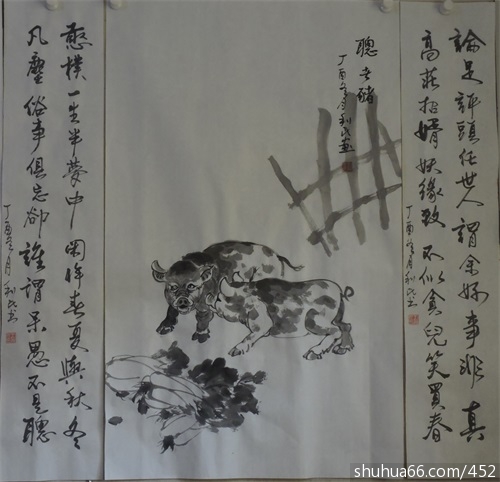 論足評頭任世人謂余好事非真
高莊招婿妖緣致不似貪兒笑買春
丁酉冬月利民書
丁酉冬月利民畫
憨樸一生半夢中閑伴春夏與秋冬
凡塵俗事俱忘卻誰謂呆愚不是聰
丁酉冬月利民書
shuhua66.com/452